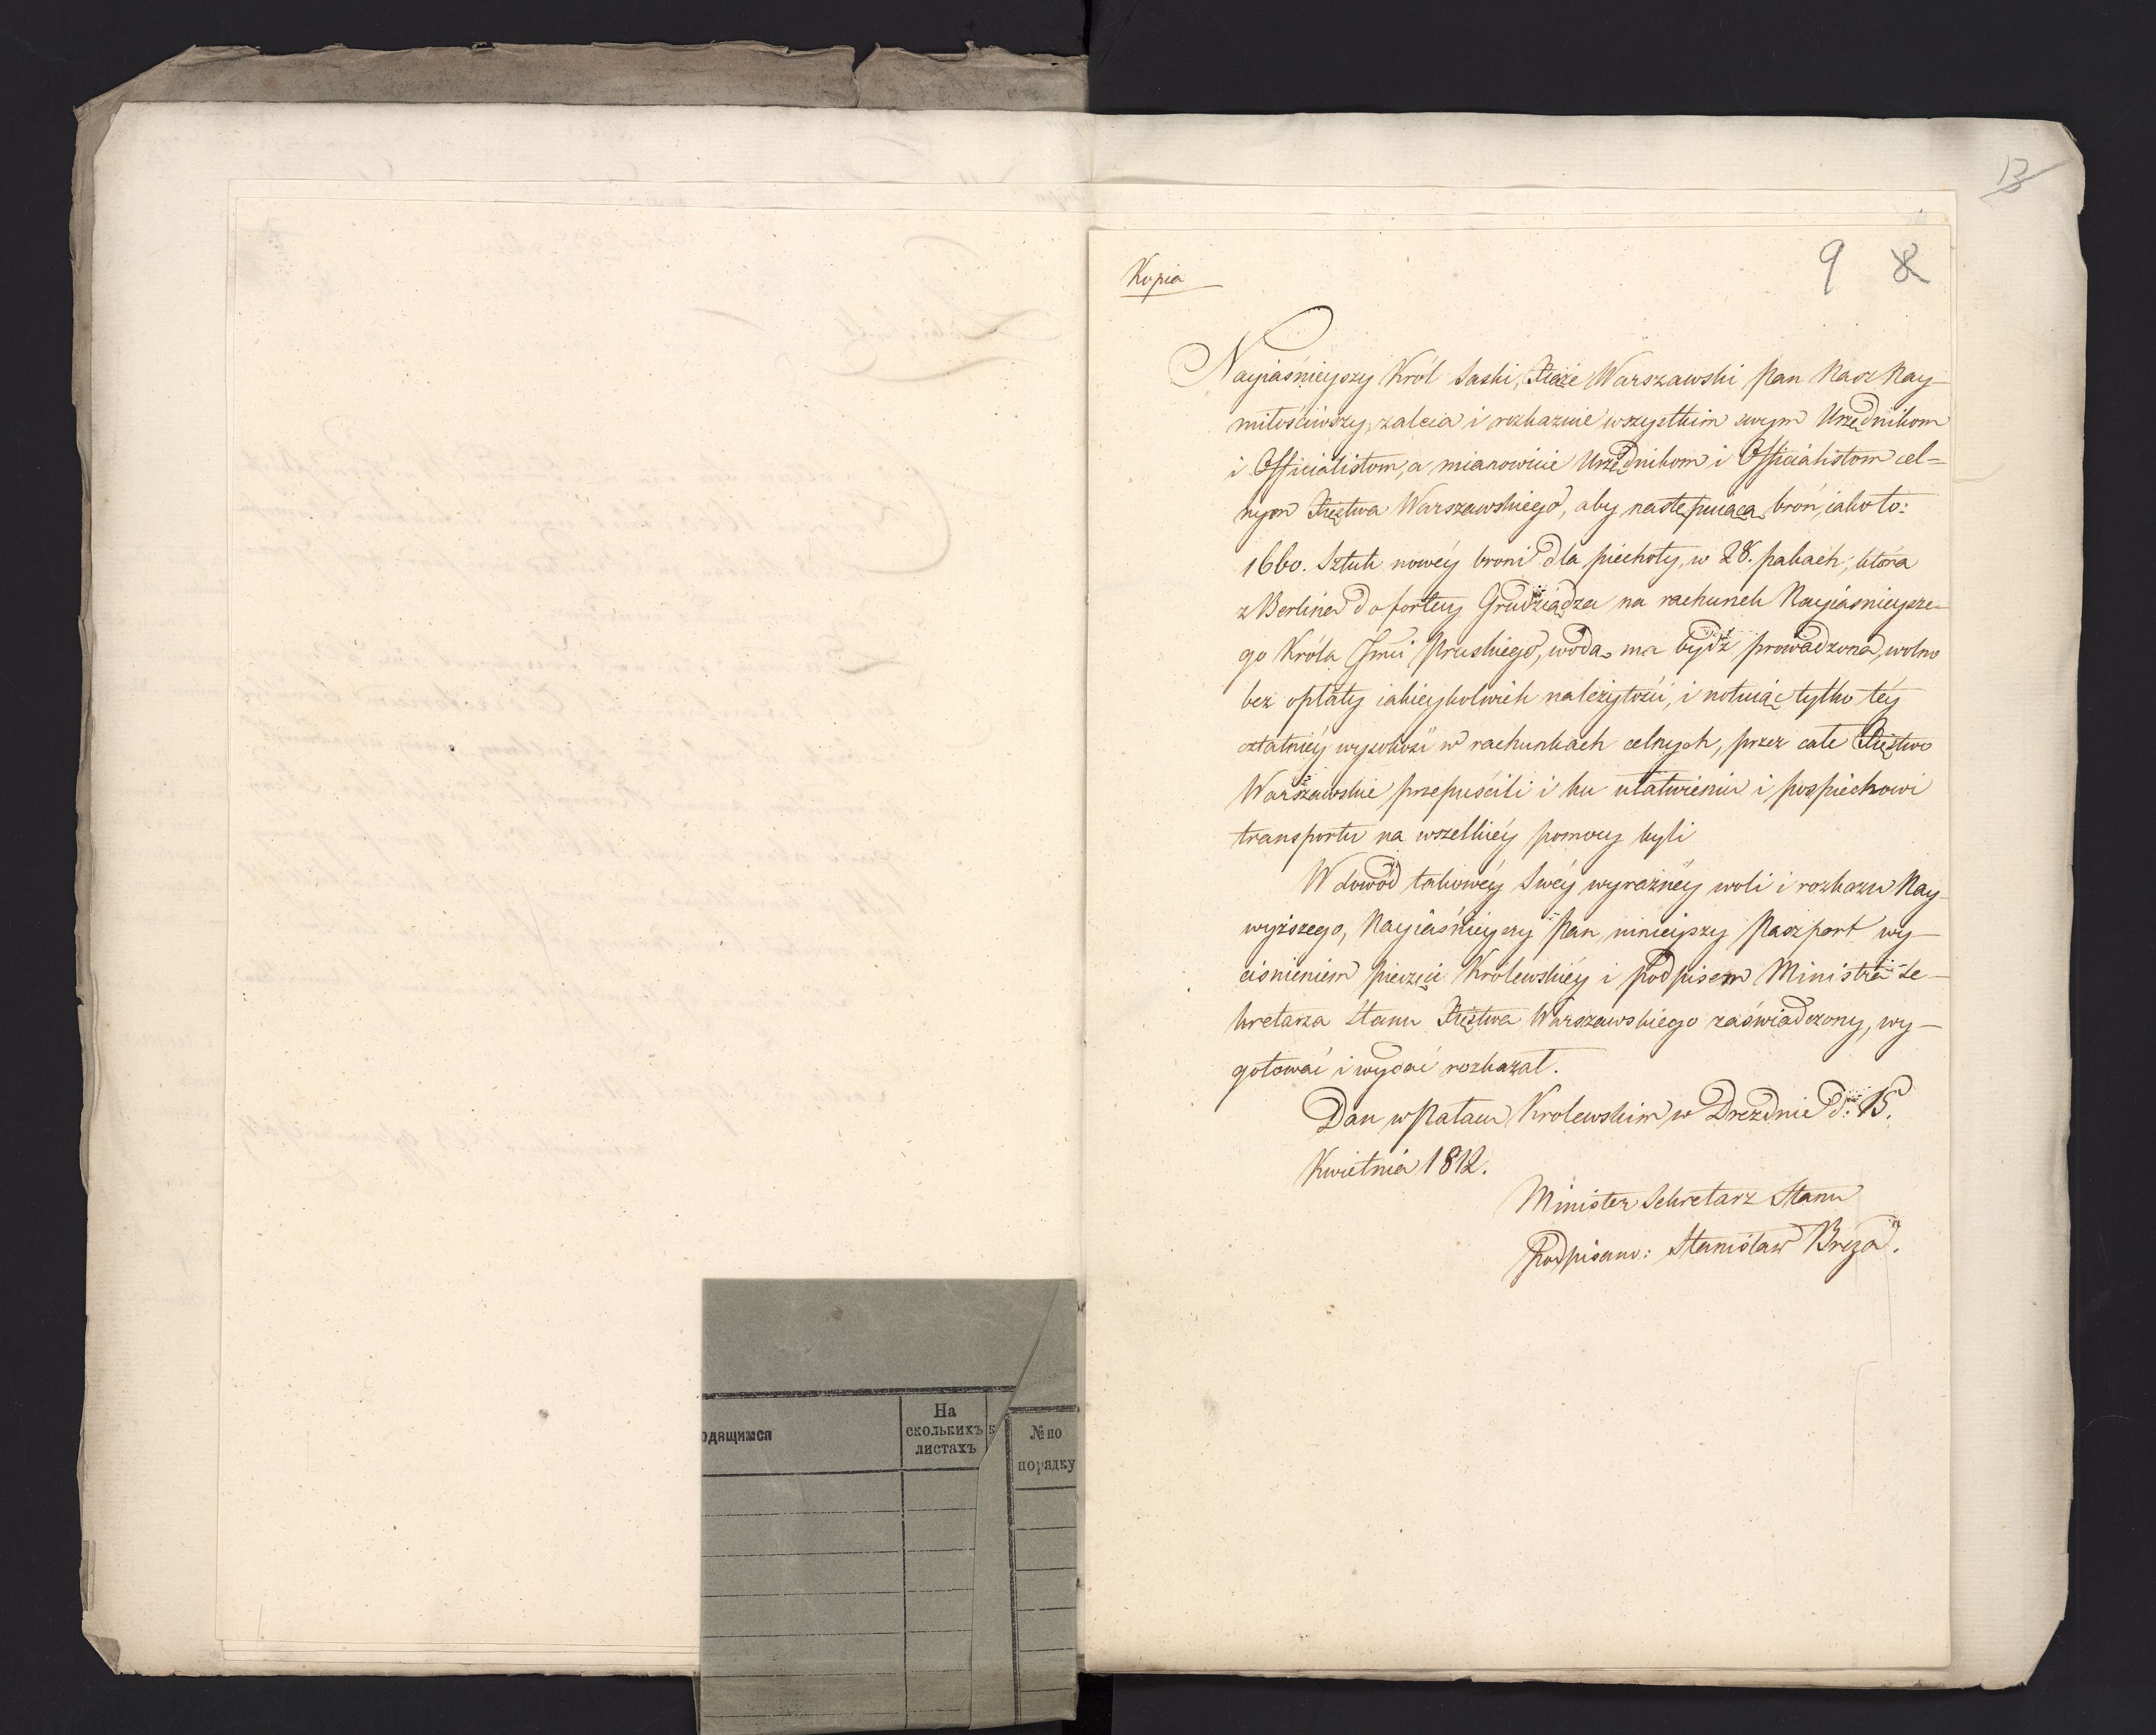 13
9 8
Kopia
Nayiaśnieyszy Król Saski, Xiąże Warszawski Pan Nasz Nay-
miłościwszy, zaleca i rozkazuie wszystkim swym Urzędnikom
i Officialistom, a mianowicie Urzędnikom i Officialistom cel=
nym Xięstwa Warszawskiego, aby następuiącą broń, iako to:
1660. Sztuk nowéy broni dla piechoty, w 28. pakach, która
z Berlina do fortecy Grudziądza na rachunek Nayiaśnieysze-
go Króla Jmći Pruskiego, wodą ma bydź prowadzona, wolno
bez opłaty iakieykolwiek należytości, i notuiąc tylko téy
ostatniéy wysokość w rachunkach celnych, przez całe Xięstwo
Warszawskie przepuścili i ku ułatwieniu i pospiechowi
transportu na wszelkiéy pomocy byli
W dowód takowéy Swéy wyraźnéy woli i rozkazu Nay-
wyższego, Nayiaśnieyszy Pan ninieyszy Paszport wy-
ciśnieniem pieczęci Królewskiéy i podpisem Ministra Se-
kretarza Stanu Xięstwa Warszawskiego zaświadczony, wy-
gotować i wydać rozkazał.
Dan w Pałacu Krolewskim w Dreźdnie d: 15.
Kwietnia 1812.
Minister Sekretarz Stanu
Podpisano: Stanisław Breza.
одящимся
На
сколькихъ
листахъ
№ по
порядку